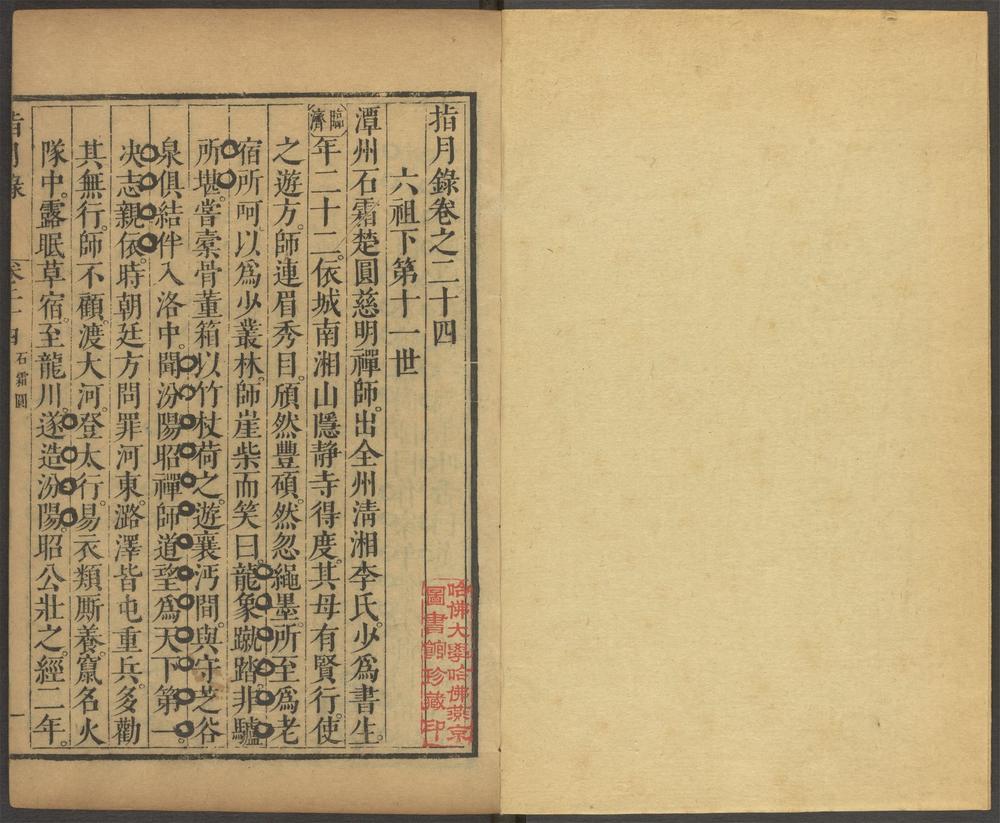 指月錄卷之二十四
六祖下第十一世
潭州石霜楚圓慈明禪師。出全州淸湘李氏。少爲書生。
臨濟
年二十二。依城南湘山隱靜寺得度。其母有賢行。使
之遊方。師連眉秀目。頎然豐碩。然忽繩墨。所至爲老
宿所呵。以爲少叢林。師崖柴而笑曰。龍象蹴踏。非驢
所堪。嘗橐骨董箱。以竹杖荷之。遊襄沔間。與守芝谷
泉俱結伴入洛中。聞汾陽昭禪師道望爲天下第一。
决志親依。時朝廷方問罪河東。潞澤皆屯重兵。多勸
其無行。師不顧。渡大河。登太行。易衣類厮養。竄名火
隊中。露眠草宿。至龍川。遂造汾陽。昭公壯之。經二年。
指月錄 卷二十四 石霜圓 一
哈佛大學哈佛燕京
圖書館珍藏印